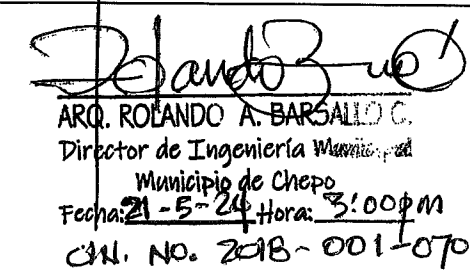 ARQ. ROLANDO A. BARSALLO C.
Director de Ingeniería Municipal
Municipio de Chepo
Fecha: 21-5-24 Hora: 3:00pm
NO. 2018-001-070